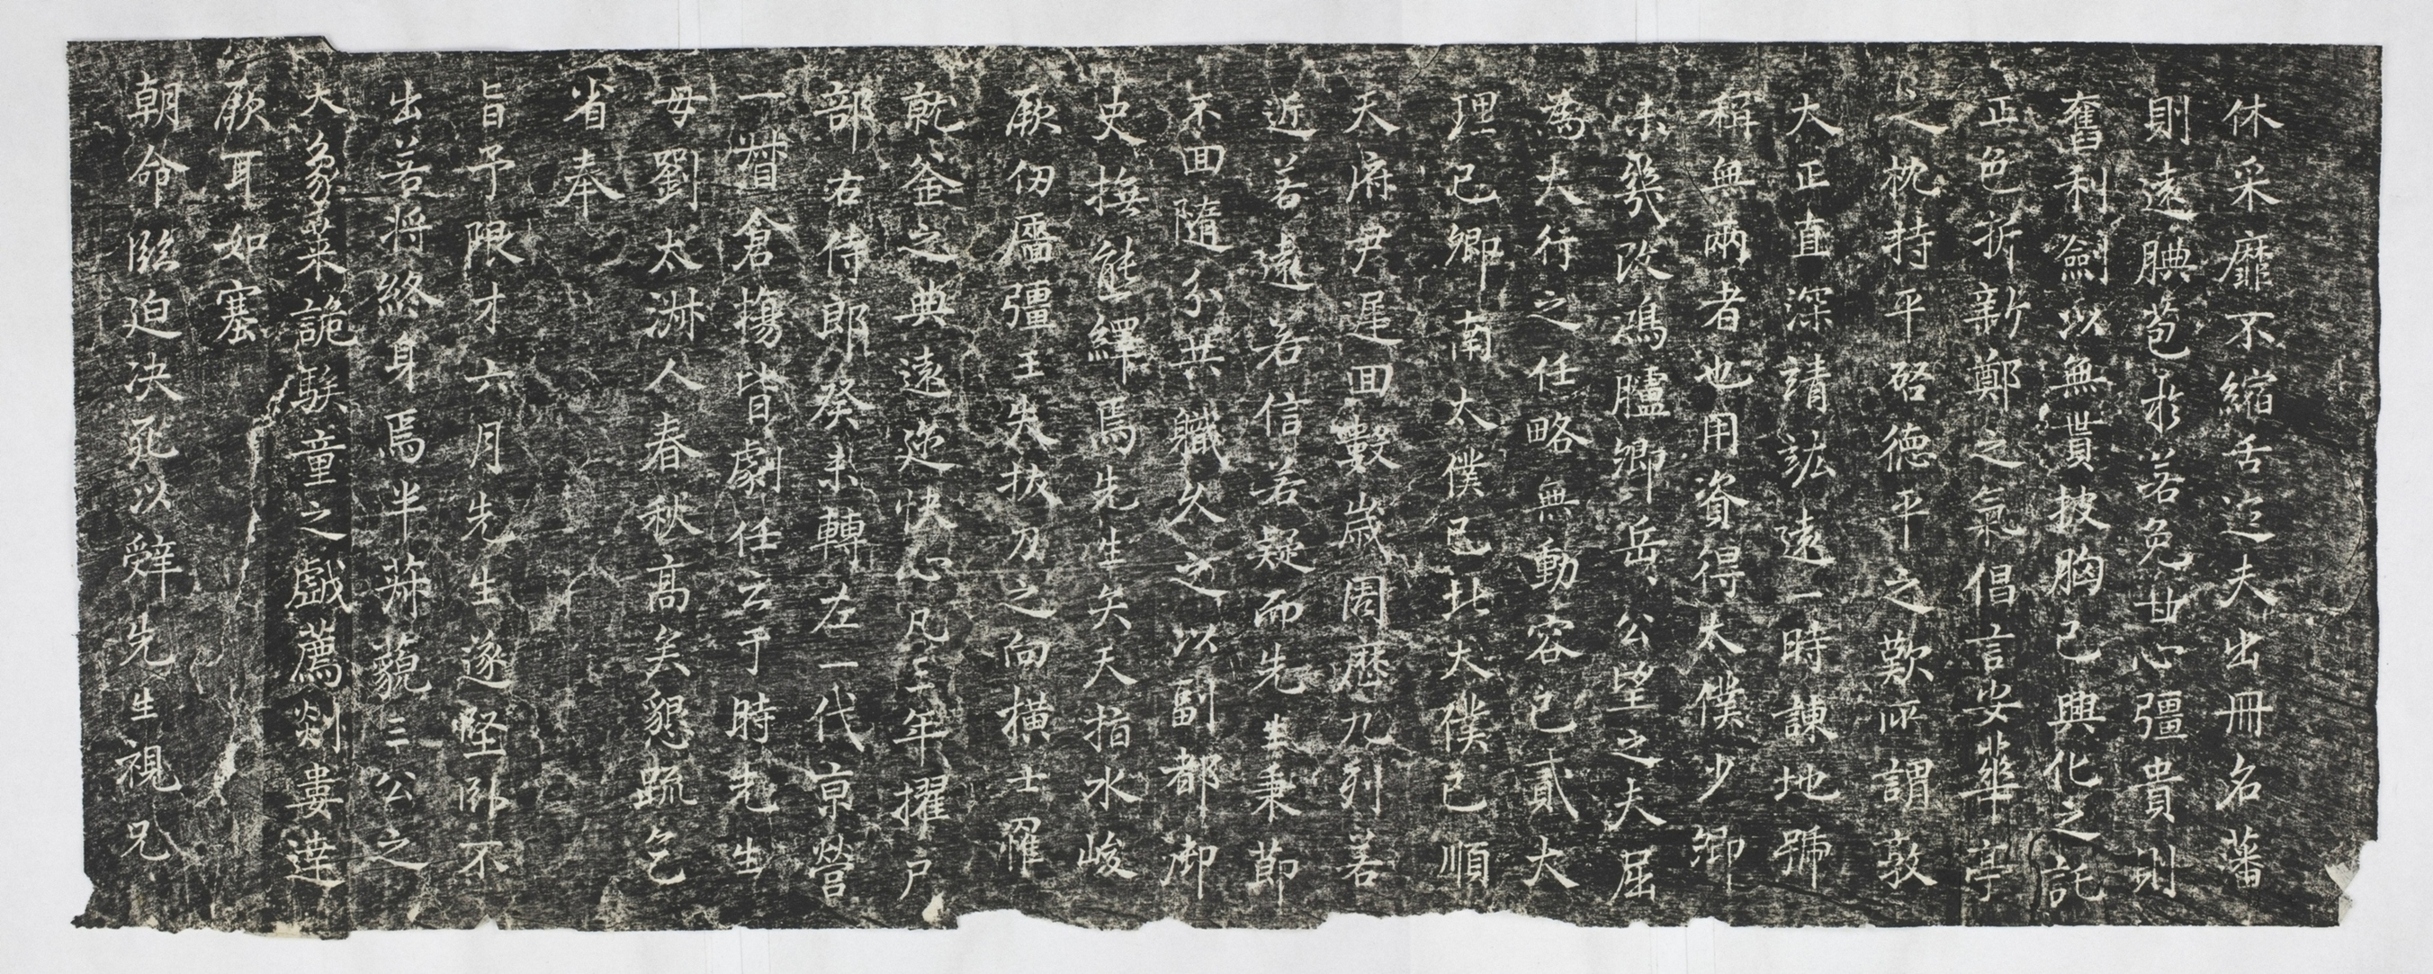 休采靡不縮舌逡夫出冊名藩
則遠腆苞於若免甘心彊貴則
奮利劍以無貰披胸已興化之託
正色折新鄭之氣倡言安華亭
之枕持平啓德平之歎所謂敦
大正直深靖竑遠一時諫地號
稱無兩者也用資得太僕少卿
未幾改鴻臚卿岳公望之夫屈
為大行之任略無動容已貳大
理已卿南太僕已北太僕已順
天府尹遲回數歲周歷九列若
近若遠若信若疑而先生秉節
不回隨分共職久之以副都御
史撫延繹焉先生矢天指水峻
厥仞牆彊王失拔刀之向橫士羅
就釜之典遠迩快心凡三年擢户
部右侍郎癸未轉左一代京營
一督倉場皆劇任云于時先生
母劉太淑人春秋高矣懇疏乞
省奉
旨予限才六月先生遂堅卧不
出若將終身焉半菽藐三公之
大象菜詭騃童之戲薦剡婁達
厥耳如塞
朝命臨迫决死以辤先生視兄